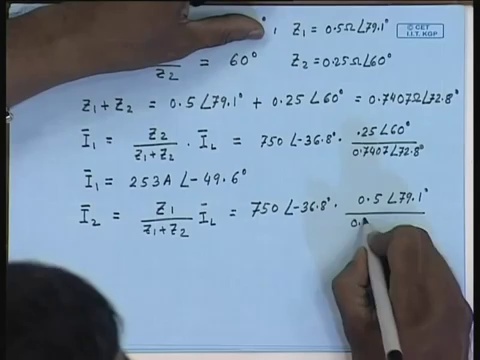 ° , Z₁ = 0.5Ω∠79.1°
© CET
I.I.T. KGP
Z₂ = 60° Z₂ = 0.25Ω∠60°
Z₁ + Z₂ = 0.5∠79.1° + 0.25∠60° = 0.7407Ω∠72.8°
Ī₁ = Z₂/(Z₁+Z₂) · Ī_L = 750∠-36.8° · .25∠60°/0.7407∠72.8°
Ī₁ = 253A∠-49.6°
Ī₂ = Z₁/(Z₁+Z₂) Ī_L = 750∠-36.8° · 0.5∠79.1°/0.